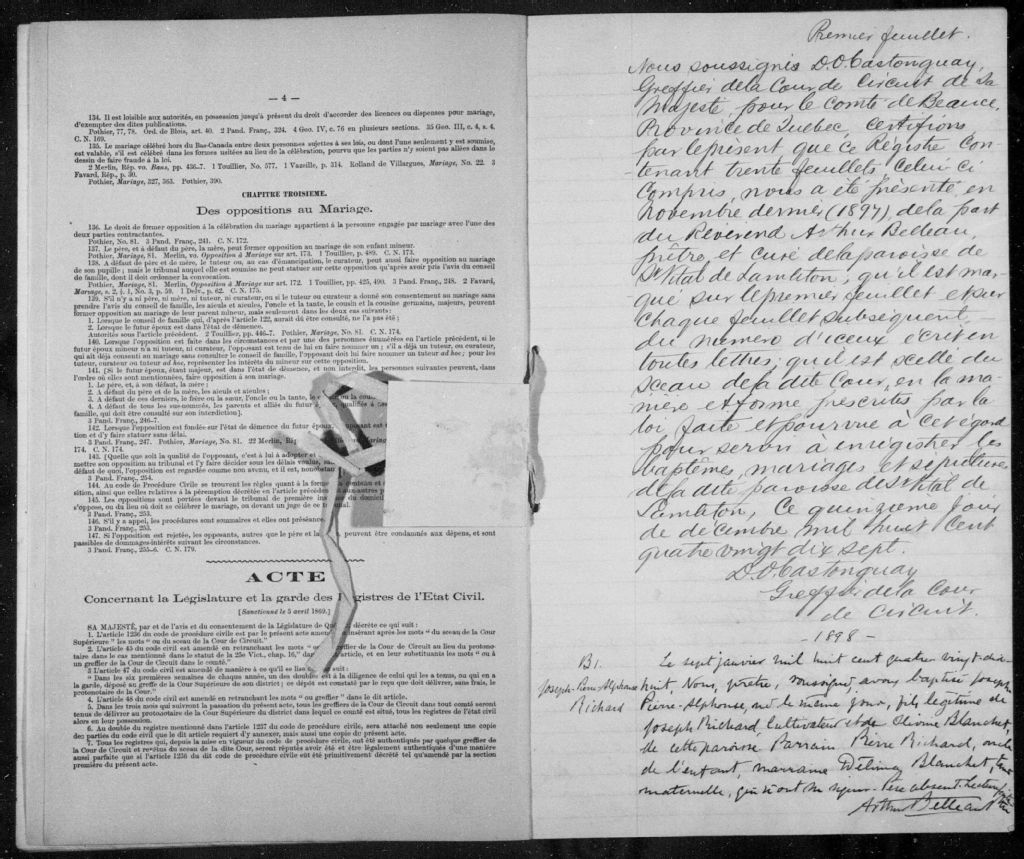 — 4 —
134. Il est loisible aux autorités, en possession jusqu'à présent du droit d'accorder des licences ou dispenses pour mariage,
d'exempter des dites publications.
Pothier, 77, 78. Ord. de Blois, art. 40. 2 Pand. Franç., 324. 4 Geo. IV, c. 76 en plusieurs sections. 35 Geo. III, c. 4, s. 4.
C. N. 169.
135. Le mariage célébré hors du Bas-Canada entre deux personnes sujettes à ses lois, ou dont l'une seulement y est soumise,
est valable, s'il est célébré dans les formes usitées au lieu de la célébration, pourvu que les parties n'y soient pas allées dans le
dessin de faire fraude à la loi.
2 Merlin, Rép. vo. Bans, pp. 436-7. 1 Touillier, No. 577. 1 Vazeille, p. 314. Rolland de Villargues, Mariage, No. 22. 3
Favard, Rép., p. 39.
Pothier, Mariage, 327, 363. Pothier, 390.
CHAPITRE TROISIEME.
Des oppositions au Mariage.
136. Le droit de former opposition à la célébration du mariage appartient à la personne engagée par mariage avec l'une des
deux parties contractantes.
Pothier, No. 81. 3 Pand. Franç., 241. C. N. 172.
137. Le père, et à défaut du père, la mère, peut former opposition au mariage de son enfant mineur.
Pothier, Mariage, 81. Merlin, vo. Opposition à Mariage sur art. 173. 1 Touillier, p. 489. C. N. 173.
138. A défaut de père et de mère, le tuteur ou, au cas d'émancipation, le curateur, peut aussi faire opposition au mariage
de son pupille ; mais le tribunal auquel elle est soumise ne peut statuer sur cette opposition qu'après avoir pris l'avis du conseil
de famille, dont il doit ordonner la convocation.
Pothier, Mariage, 81. Merlin, Opposition à Mariage sur art. 172. 1 Touillier, pp. 425, 490. 3 Pand. Franç., 248. 2 Favard,
Mariage, s. 2, § 1, No. 3, p. 59. 1 Delv., p. 62. C. N. 175.
139. S'il n'y a ni père, ni mère, ni tuteur, ni curateur, ou si le tuteur ou curateur a donné son consentement au mariage sans
prendre l'avis du conseil de famille, les aïeuls et aïeules, l'oncle et la tante, le cousin et la cousine germains, majeurs, peuvent
former opposition au mariage de leur parent mineur, mais seulement dans les deux cas suivants :
1. Lorsque le conseil de famille qui, d'après l'article 122, aurait dû être consulté, ne l'a pas été ;
2. Lorsque le futur époux est dans l'état de démence.
Autorités sous l'article précédent. 2 Touillier, pp. 466-7. Pothier, Mariage, No. 81. C. N. 174.
140. Lorsque l'opposition est faite dans les circonstances et par une des personnes énumérées en l'article précédent, si le
futur époux mineur n'a ni tuteur, ni curateur, l'opposant est tenu de lui en faire nommer un ; s'il a déjà un tuteur, ou curateur,
qui ait déjà consenti au mariage sans consulter le conseil de famille, l'opposant doit lui faire nommer un tuteur ad hoc ; pour les
tuteur, curateur ou tuteur ad hoc, représenter les intérêts du mineur sur cette opposition.
141. [Si le futur époux, étant majeur, est dans l'état de démence, et non interdit, les personnes suivantes peuvent, dans
l'ordre où elles sont mentionnées, faire opposition à son mariage.
1. Le père, et, à son défaut, la mère ;
2. A défaut du père et de la mère, les aïeuls et aïeules ;
3. A défaut de ces derniers, le frère ou la sœur, l'oncle ou la tante, le
4. A défaut de tous les sus-nommés, les parents et alliés du futur
famille, qui doit être consulté sur son interdiction].
3 Pand. Franç., 246-7.
142. Lorsque l'opposition est fondée sur l'état de démence du futur époux,
tion et d'y faire statuer sans délai.
3 Pand. Franç., 247. Pothier, Mariage, No. 81. 22 Merlin, Rép.
174. C. N. 174.
143. [Quelle que soit la qualité de l'opposant, c'est à lui à adopter et
mettre son opposition au tribunal et l'y faire décider sous les délais voulus, sans
défaut de quoi, l'opposition est regardée comme non avenu, et il est, nonobstant
3 Pand. Franç., 254.
144. Au code de Procédure Civile se trouvent les règles quant à la forme
sition, ainsi que celles relatives à la péremption décrétée en l'article précédent
145. Les oppositions sont portées devant le tribunal de première
s'oppose, ou du lieu où doit se célébrer le mariage, ou devant un juge de ce tribunal.
3 Pand. Franç., 253.
146. S'il y a appel, les procédures sont sommaires et elles ont préséance.
3 Pand. Franç., 253.
147. Si l'opposition est rejetée, les opposants, autres que le père et la peuvent être condamnés aux dépens, et sont
passibles de dommages-intérêts suivant les circonstances.
3 Pand. Franç., 255-6. C. N. 179.
ACTE
Concernant la Législature et la garde des Registres de l'Etat Civil.
[Sanctionné le 5 avril 1869.]
SA MAJESTÉ, par et de l'avis et du consentement de la Législature de décrète ce qui suit :
1. L'article 1236 du code de procédure civile est par le présent acte amendé insérant après les mots “ du sceau de la Cour
Supérieure ” les mots “ ou du sceau de la Cour de Circuit.”
2. L'article 45 du code civil est amendé en retranchant les mots de la Cour de Circuit au lieu du protono-
taire dans le cas mentionné dans le statut de la 25e Vict., chap. 16,” dans article, et en leur substituants les mots “ ou à
un greffier de la Cour de Circuit dans le comté.”
3. L'article 47 du code civil est amendé de manière à ce qu'il se lise suit :
“ Dans les six premières semaines de chaque année, un des doubles est à la diligence de celui qui les a tenus, ou qui en a
la garde, déposé au greffe de la Cour Supérieure de son district; ce dépôt est constaté par le reçu que doit délivrer, sans frais, le
protonotaire de la Cour.”
4. L'article 48 du code civil est amendé en retranchant les mots “ ou greffier ” dans le dit article.
5. Dans les trois mois qui suivront la passation du présent acte, tous les greffiers de la Cour de Circuit dans tout comté seront
tenus de délivrer au protonotaire de la Cour Supérieure du district dans lequel ce comté est situé, tous les registres de l'état civil
alors en leur possession.
6. Au double du registre mentionné dans l'article 1237 du code de procédure civile, sera attaché non seulement une copie
des parties du code civil que le dit article requiert d'y annexer, mais aussi une copie du présent acte.
7. Tous les registres qui, depuis la mise en vigueur du code de procédure civile, ont été authentiqués par quelque greffier de
la Cour de Circuit et revêtus du sceau de la dite Cour, seront réputés avoir été et être légalement authentiqués d'une manière
aussi parfaite que si l'article 1236 du dit code de procédure civile eut été primitivement décrété tel qu'amendé par la section
première du présent acte.
Premier feuillet.
Nous soussigné D.O. Castonguay,
Greffier de la Cour de Circuit de Sa
Majesté, pour le comté de Beauce,
Province de Québec, certifions
par le présent que ce Registre con-
tenant trente feuillets, celui ci
compris, nous a été présenté en
Novembre dernier (1897), de la part
du Révérend Arthur Belleau,
prêtre, et curé de la paroisse de
St Vital de Lambton ; qu'il est mar-
qué sur le premier feuillet et sur
chaque feuillet subséquent
du numéro d'iceux écrit en
toutes lettres ; qu'il est scellé du
sceau de la dite Cour, en la ma-
nière et forme prescrites par la
loi faite et pourvue à cet égard
pour servir à enregistrer les
baptêmes, mariages et sépultures
de la dite paroisse de St Vital de
Lambton, ce quinzième jour
de décembre mil huit cent
quatre vingt dix sept.
D.O. Castonguay
Greffier de la Cour
de Circuit.
1898 -
B1.
Joseph-Pierre-Alphonse
Richard
Le sept janvier mil huit cent quatre vingt-dix-
huit, Nous, prêtre, soussigné, avons baptisé Joseph
Pierre-Alphonse, né le même jour, fils légitime de
Joseph Richard, cultivateur et de Elvine Blanchet,
de cette paroisse. Parrain Pierre Richard, oncle
de l'enfant, marraine Délima Blanchet, tante
maternelle, qui n'ont su signer. Père absent. Lecture faite
Arthur Belleau Ptre